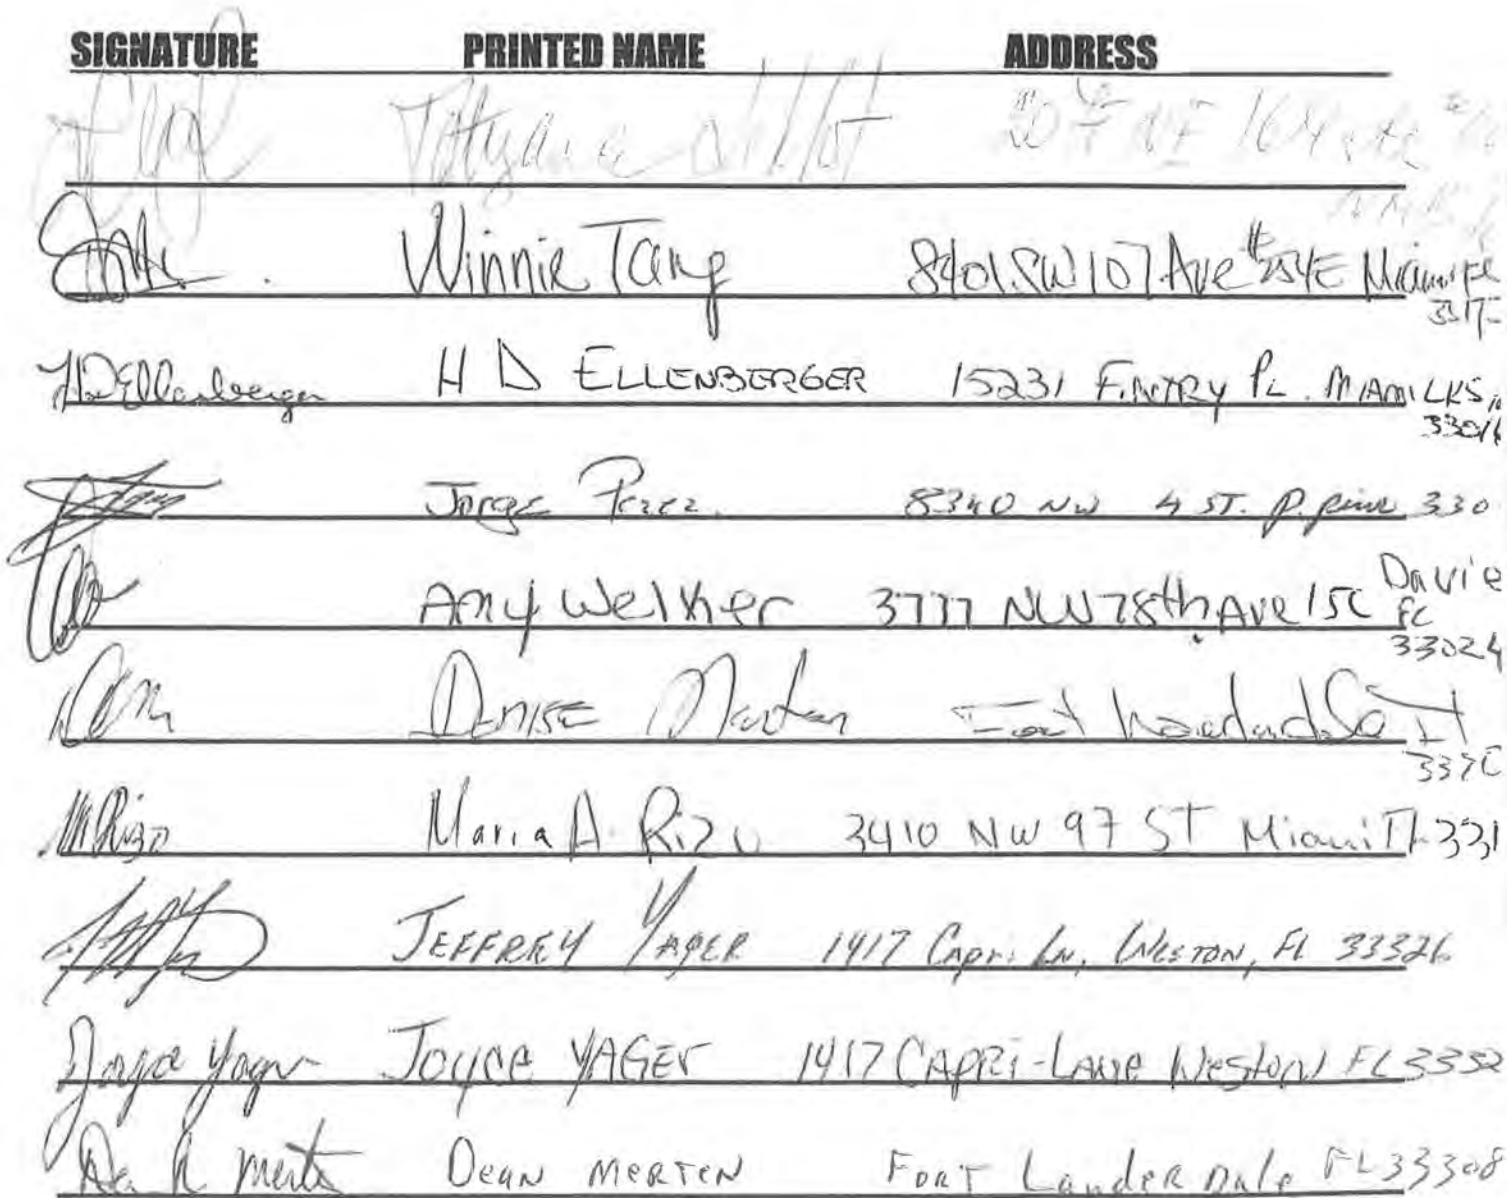 SIGNATURE PRINTED NAME ADDRESS
NE 164
Winnie Tang 8401 SW 107 Ave #254E Miami FL
3317
HDEllenberger H D ELLENBERGER 15231 FINTRY PL. MIAMI LKS,
33016
Jorge Perez 8340 NW 4 ST. P. pine 330
Amy Welker 3777 NW 78th Ave 15C Davie
FL
33024
DENISE Merten Fort Lauderdale
333
MRizo Maria A. Rizo 3410 NW 97 ST Miami Fl 331
JEFFREY YAGER 1417 Capri Ln, WESTON, FL 33326
Joyce Yager Joyce YAGEr 1417 CAPRi-LANe Weston FL 3332
Merten Dean MERTEN FORT Lauderdale FL 33308